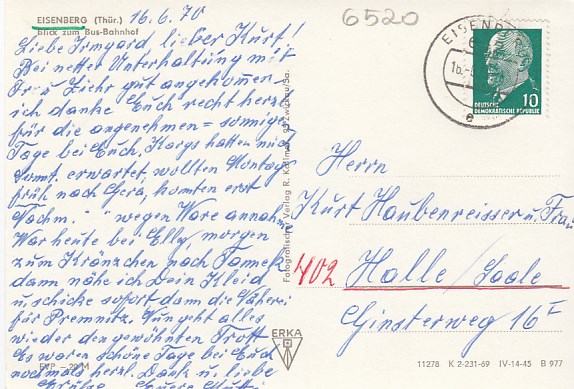 EISENBERG (Thür.) 16.6.70
Blick zum Bus-Bahnhof
6520
Liebe Irmgard, lieber Kurt!
Bei netter Unterhaltung mit
gut angekommen,
ich danke Euch recht herzl.
für die angenehmen = sonnige
Tage bei Euch. Kargs hatten mich
erwartet, wollten Montag
früh nach Gera, konnten erst
Nachm. " " wegen Ware annahm.
War heute bei Elly, morgen
zum Kränzchen nach
dann nähe ich Dein Kleid
u. schicke sofort dann die Näherei
für Premnitz. Nun geht alles
wieder den gewohnten Trott
Es waren schöne Tage bei Euch
nochmals herzl. Dank u. liebe
Grüße Eure
EVP —.20 M
Fotografischer Verlag R.
ERKA
EISENBERG
16.
e
DEUTSCHE
DEMOKRATISCHE REPUBLIK
10
Herrn
Kurt Haubenreisser u. Frau
402 Halle/Saale
Ginsterweg 16 I
11278 K 2-231-69 IV-14-45 B 977